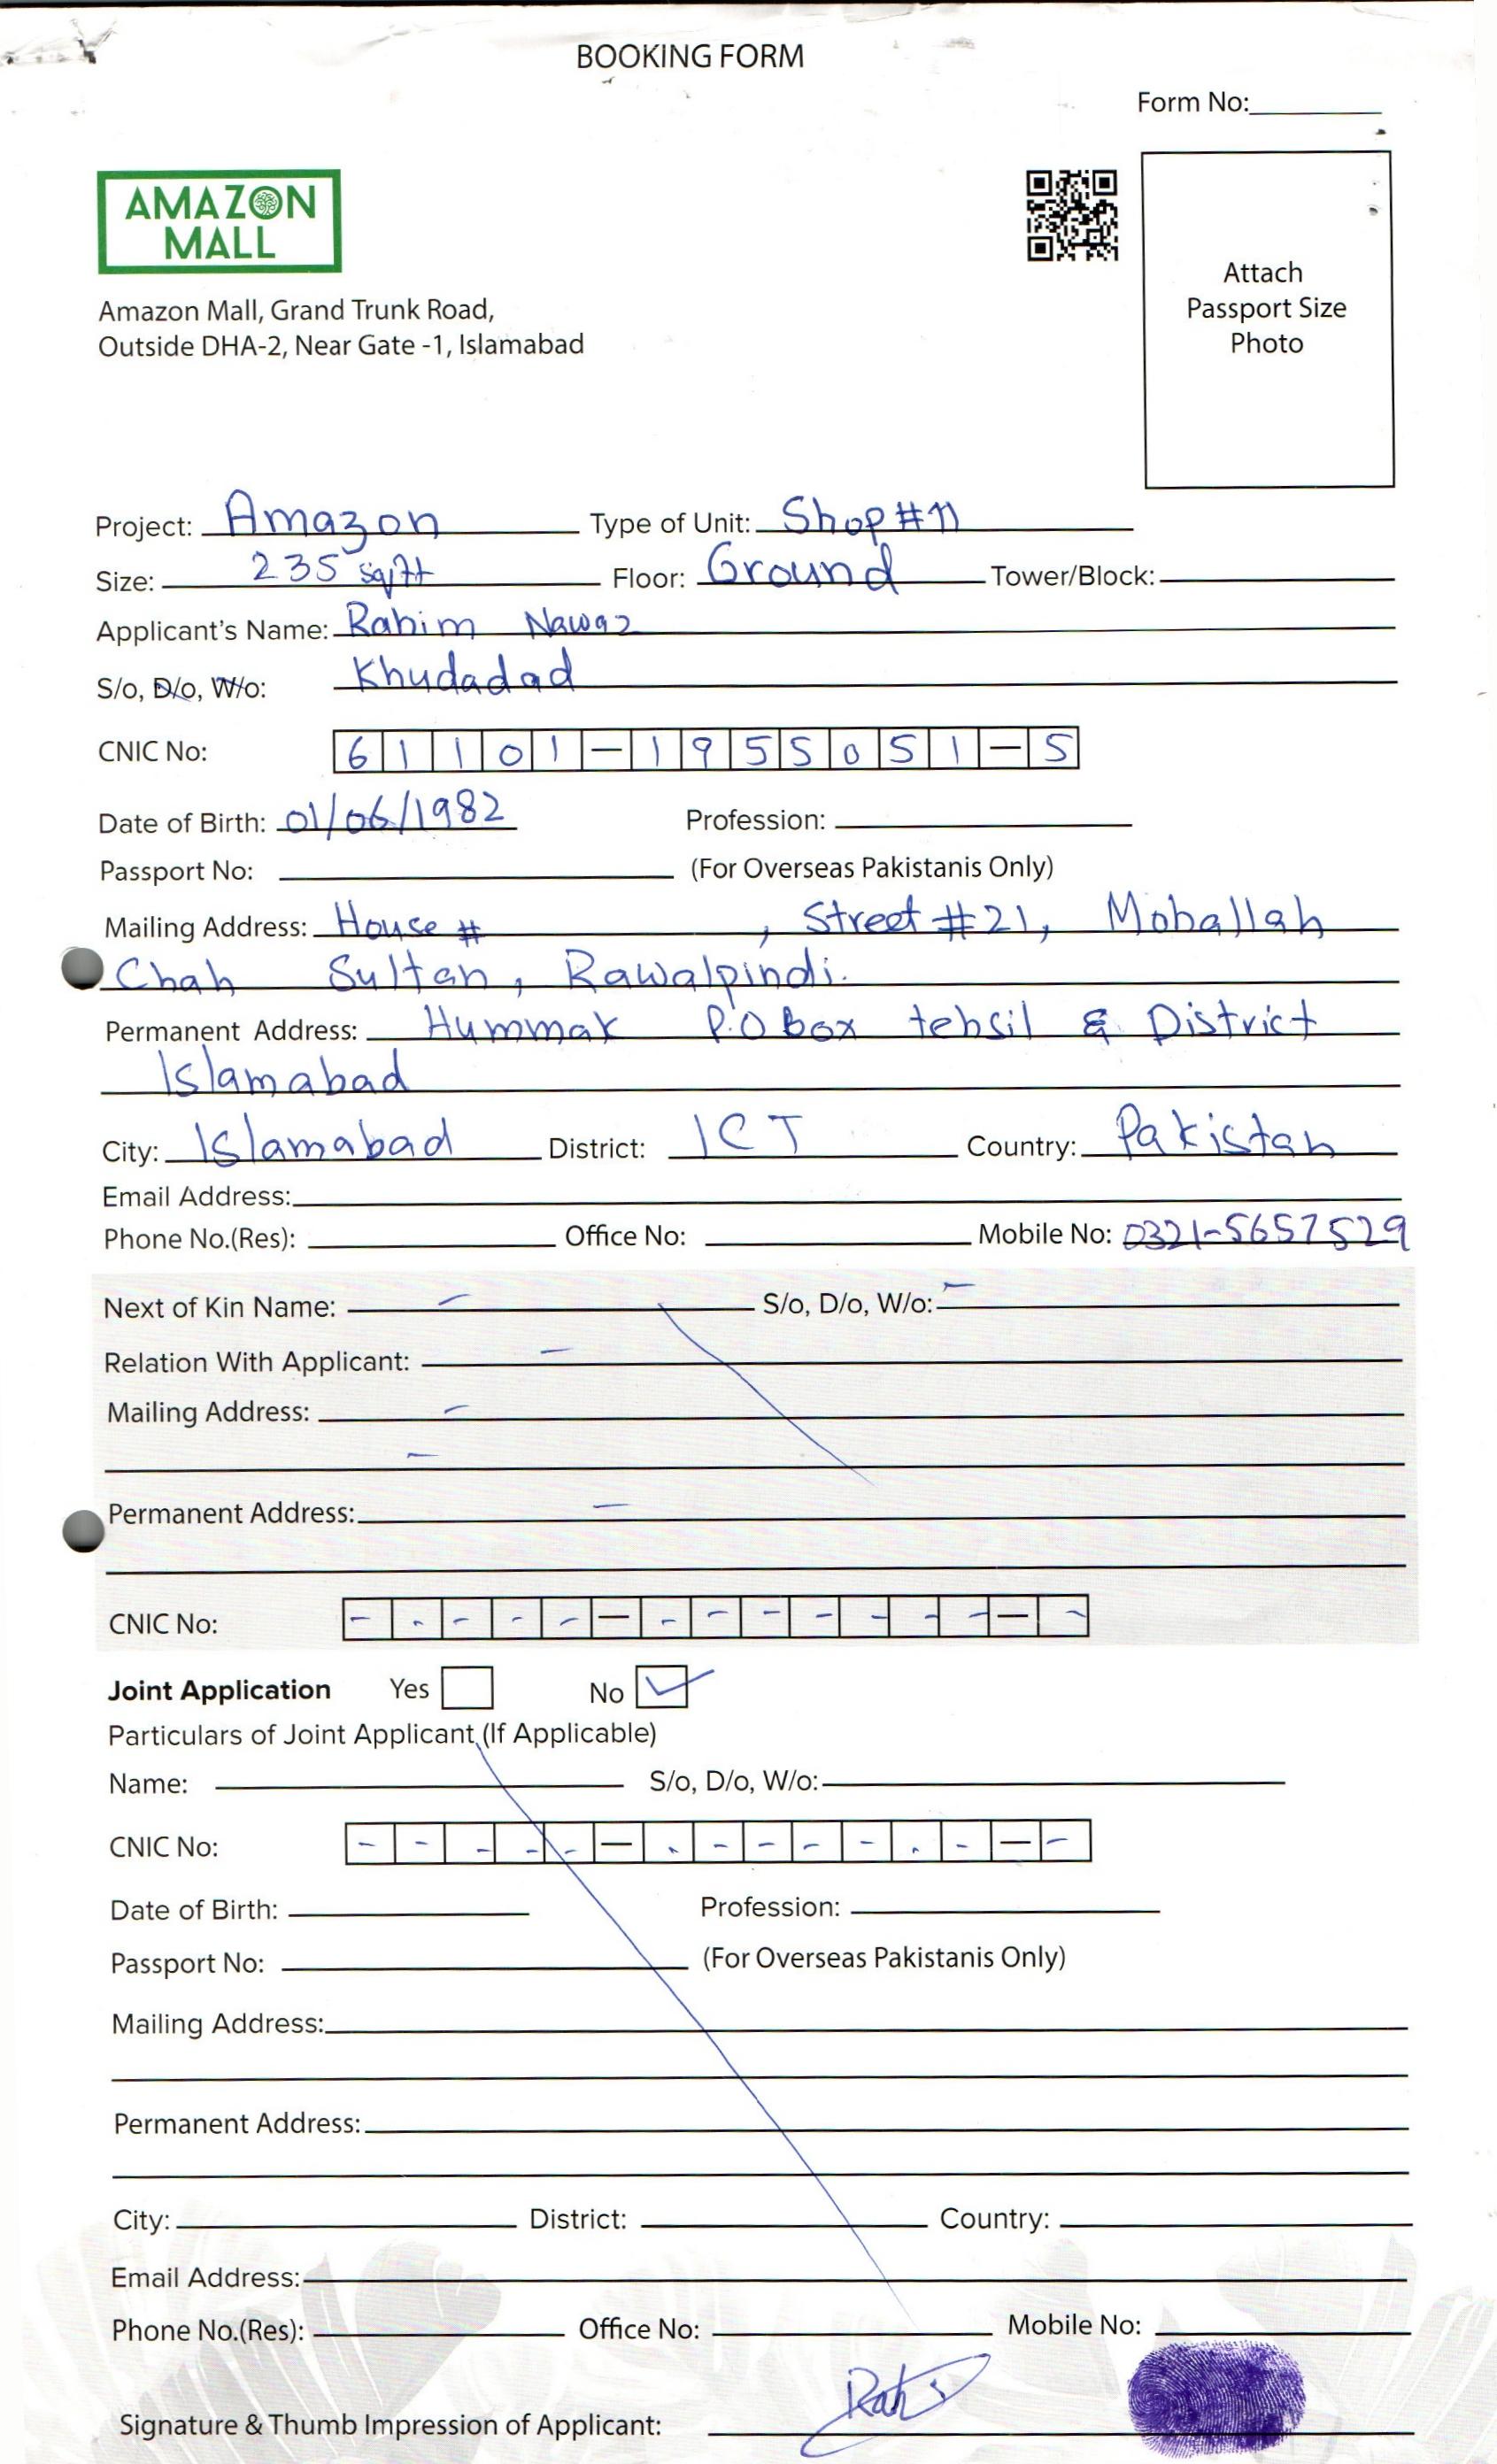 BOOKING FORM
Form No:
AMAZON
MALL
Attach
Passport Size
Photo
Amazon Mall, Grand Trunk Road,
Outside DHA-2, Near Gate -1, Islamabad
Project: Amazon Type of Unit: Shop # 11
Size: 235 sq/ft Floor: Ground Tower/Block:
Applicant's Name: Rahim Nawaz
S/o, D/o, W/o: Khudadad
CNIC No: 61101-1955051-5
Date of Birth: 01/06/1982 Profession:
Passport No: (For Overseas Pakistanis Only)
Mailing Address: House # , Street # 21, Mohallah
Chah Sultan, Rawalpindi.
Permanent Address: Hummak P.O box tehsil & District
Islamabad
City: Islamabad District: ICT Country: Pakistan
Email Address:
Phone No.(Res): Office No: Mobile No: 0321-5657529
Next of Kin Name: – S/o, D/o, W/o: –
Relation With Applicant: –
Mailing Address: –
–
Permanent Address: –
CNIC No: - - - - - — - - - - - - - — -
Joint Application Yes No ✓
Particulars of Joint Applicant (If Applicable)
Name: S/o, D/o, W/o:
CNIC No: - - - - - — - - - - - - - — -
Date of Birth: Profession:
Passport No: (For Overseas Pakistanis Only)
Mailing Address:
Permanent Address:
City: District: Country:
Email Address:
Phone No.(Res): Office No: Mobile No:
Signature & Thumb Impression of Applicant: